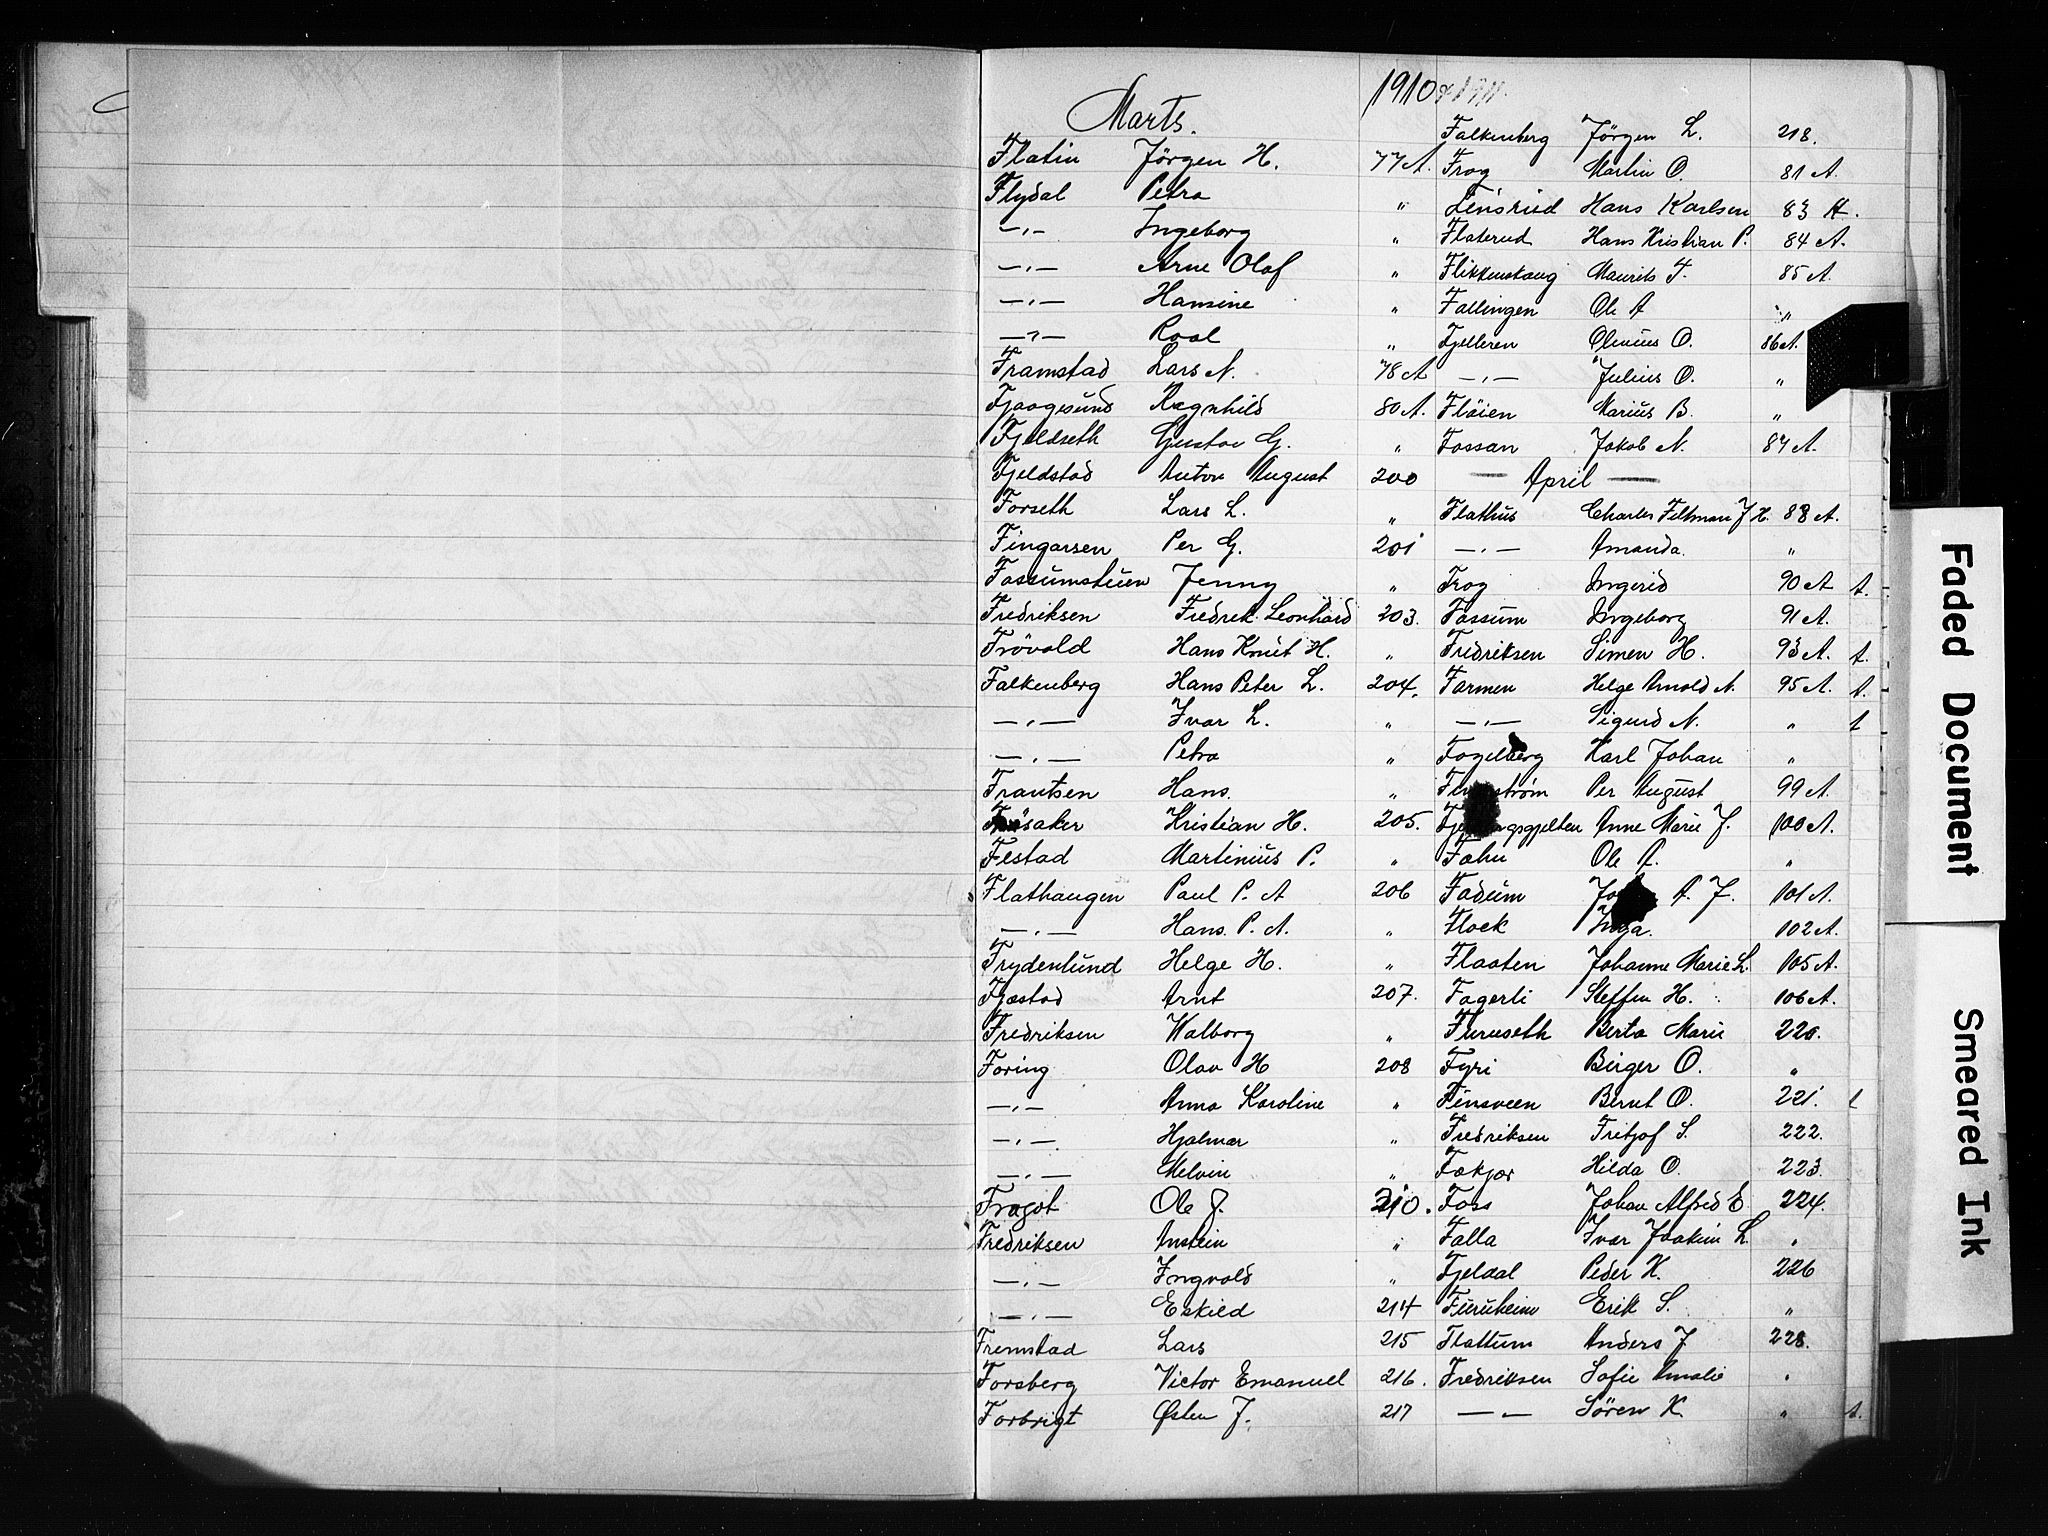 1910 & 1911.
Marts.
Flatin Jörgen H. 77 A.
Flydal Petra "
—"— Ingeborg "
—"— Arne Olaf "
—"— Hansine "
—"— Roal "
Framstad Lars N. 78 A
Fjaagesund Ragnhild 80 A.
Fjeldseth Gustav G. "
Fjeldstad Anton August 200
Forseth Lars L. "
Fingarsen Per G. 201
Fossumstuen Jenny "
Fredriksen Fredrik Leonhard 203.
Frövold Hans Knut H. "
Falkenberg Hans Peter L. 204.
—"— Ivar L. "
—"— Petra "
Frantsen Hans. "
Kristian H. 205.
Festad Martinius P. "
Flathaugen Paul P. A 206
—"— Hans. P. A. "
Frydenlund Helge H. "
Fjæstad Arnt 207.
Fredriksen Walborg "
Foring Olav H 208
—"— Anna Karoline "
—"— Hjalmar "
—"— Melvin "
Fragot Ole J. 210.
Fredriksen Anstein "
—"— Ingvald "
—"— Eskild 214
Fremstad Lars 215
Forsberg Victor Emanuel 216.
Forbrigt Østen J. 217
Falkenberg Jörgen L. 218.
Frog Martin O. 81 A.
Finsrud Hans Karlsen 83 A.
Flaterud Hans Kristian P. 84 A.
Flikkenskaug Maurits F. 85 A.
Fallingen Ole A "
Fjelleren Olenius O. 86 A.
—"— Julius O. "
Flöien Marius B. "
Fossan Jakob N. 87 A.
— April —
Flathus Charles Feltman J H. 88 A.
—"— Amanda. "
Frog Ingerid 90 A t.
Fossum Ingeborg 91 A.
Fredriksen Simen H. 93 A. t.
Farmen Helge Arnold N. 95 A. t.
—"— Sigurd N. " t
Fogelberg Karl Johan "
Per August 99 A.
Anne Marie J. 100 A.
Fahn Ole A. "
Fadum A. J. 101 A.
Flock Inga. 102 A.
Flaaten Johanne Marie L. 105 A.
Fagerli Steffen H. 106 A.
Furuseth Berta Marie 220.
Fyri Birger O. "
Finsveen Bernt O. 221. t
Fredriksen Fritjof S. 222.
Fækjor Hilda O. 223
Foss Johan Alfred E 224.
Falla Ivar Joakim L. "
Fjeldal Peder K. 226
Furuheim Erik S. "
Flattum Anders J 228.
Fredriksen Sofie Amalie "
—"— Sören K. " t.
Faded Document
Smeared Ink